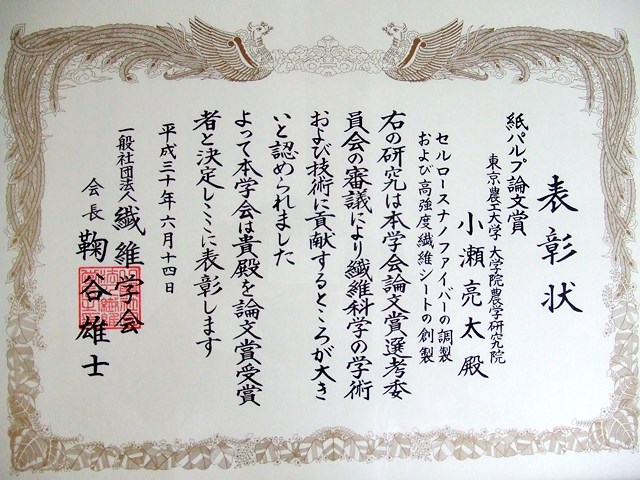 表彰状
紙パルプ論文賞
東京農工大学 大学院農学研究院
小瀬亮太殿
セルロースナノファイバーの調製
および高強度繊維シートの創製
右の研究は本学会論文賞選考委
員会の審議により繊維科学の学術
および技術に貢献するところが大き
いと認められました
よって本学会は貴殿を論文賞受賞
者と決定しここに表彰します
平成三十年六月十四日
一般社団法人 繊維学会
会長 鞠谷雄士